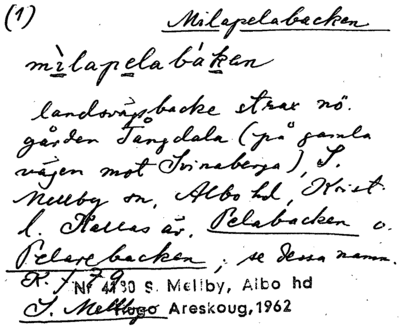 (1) Milapelabacken
mìlapelabáken
landsvägsbacke strax nö.
gården Tångdala (på gamla
vägen mot Svinaberga), S.
Mellby sn, Albo hd, Krist.
l. Kallas äv. Pelabacken o.
Pelarebacken; se dessa namn.
Nr 4130 S. Mellby, Albo hd
S. Mellby Areskoug, 1962